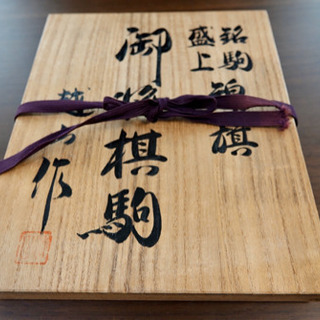 銘駒錦旗
盛上
御将棋駒
作